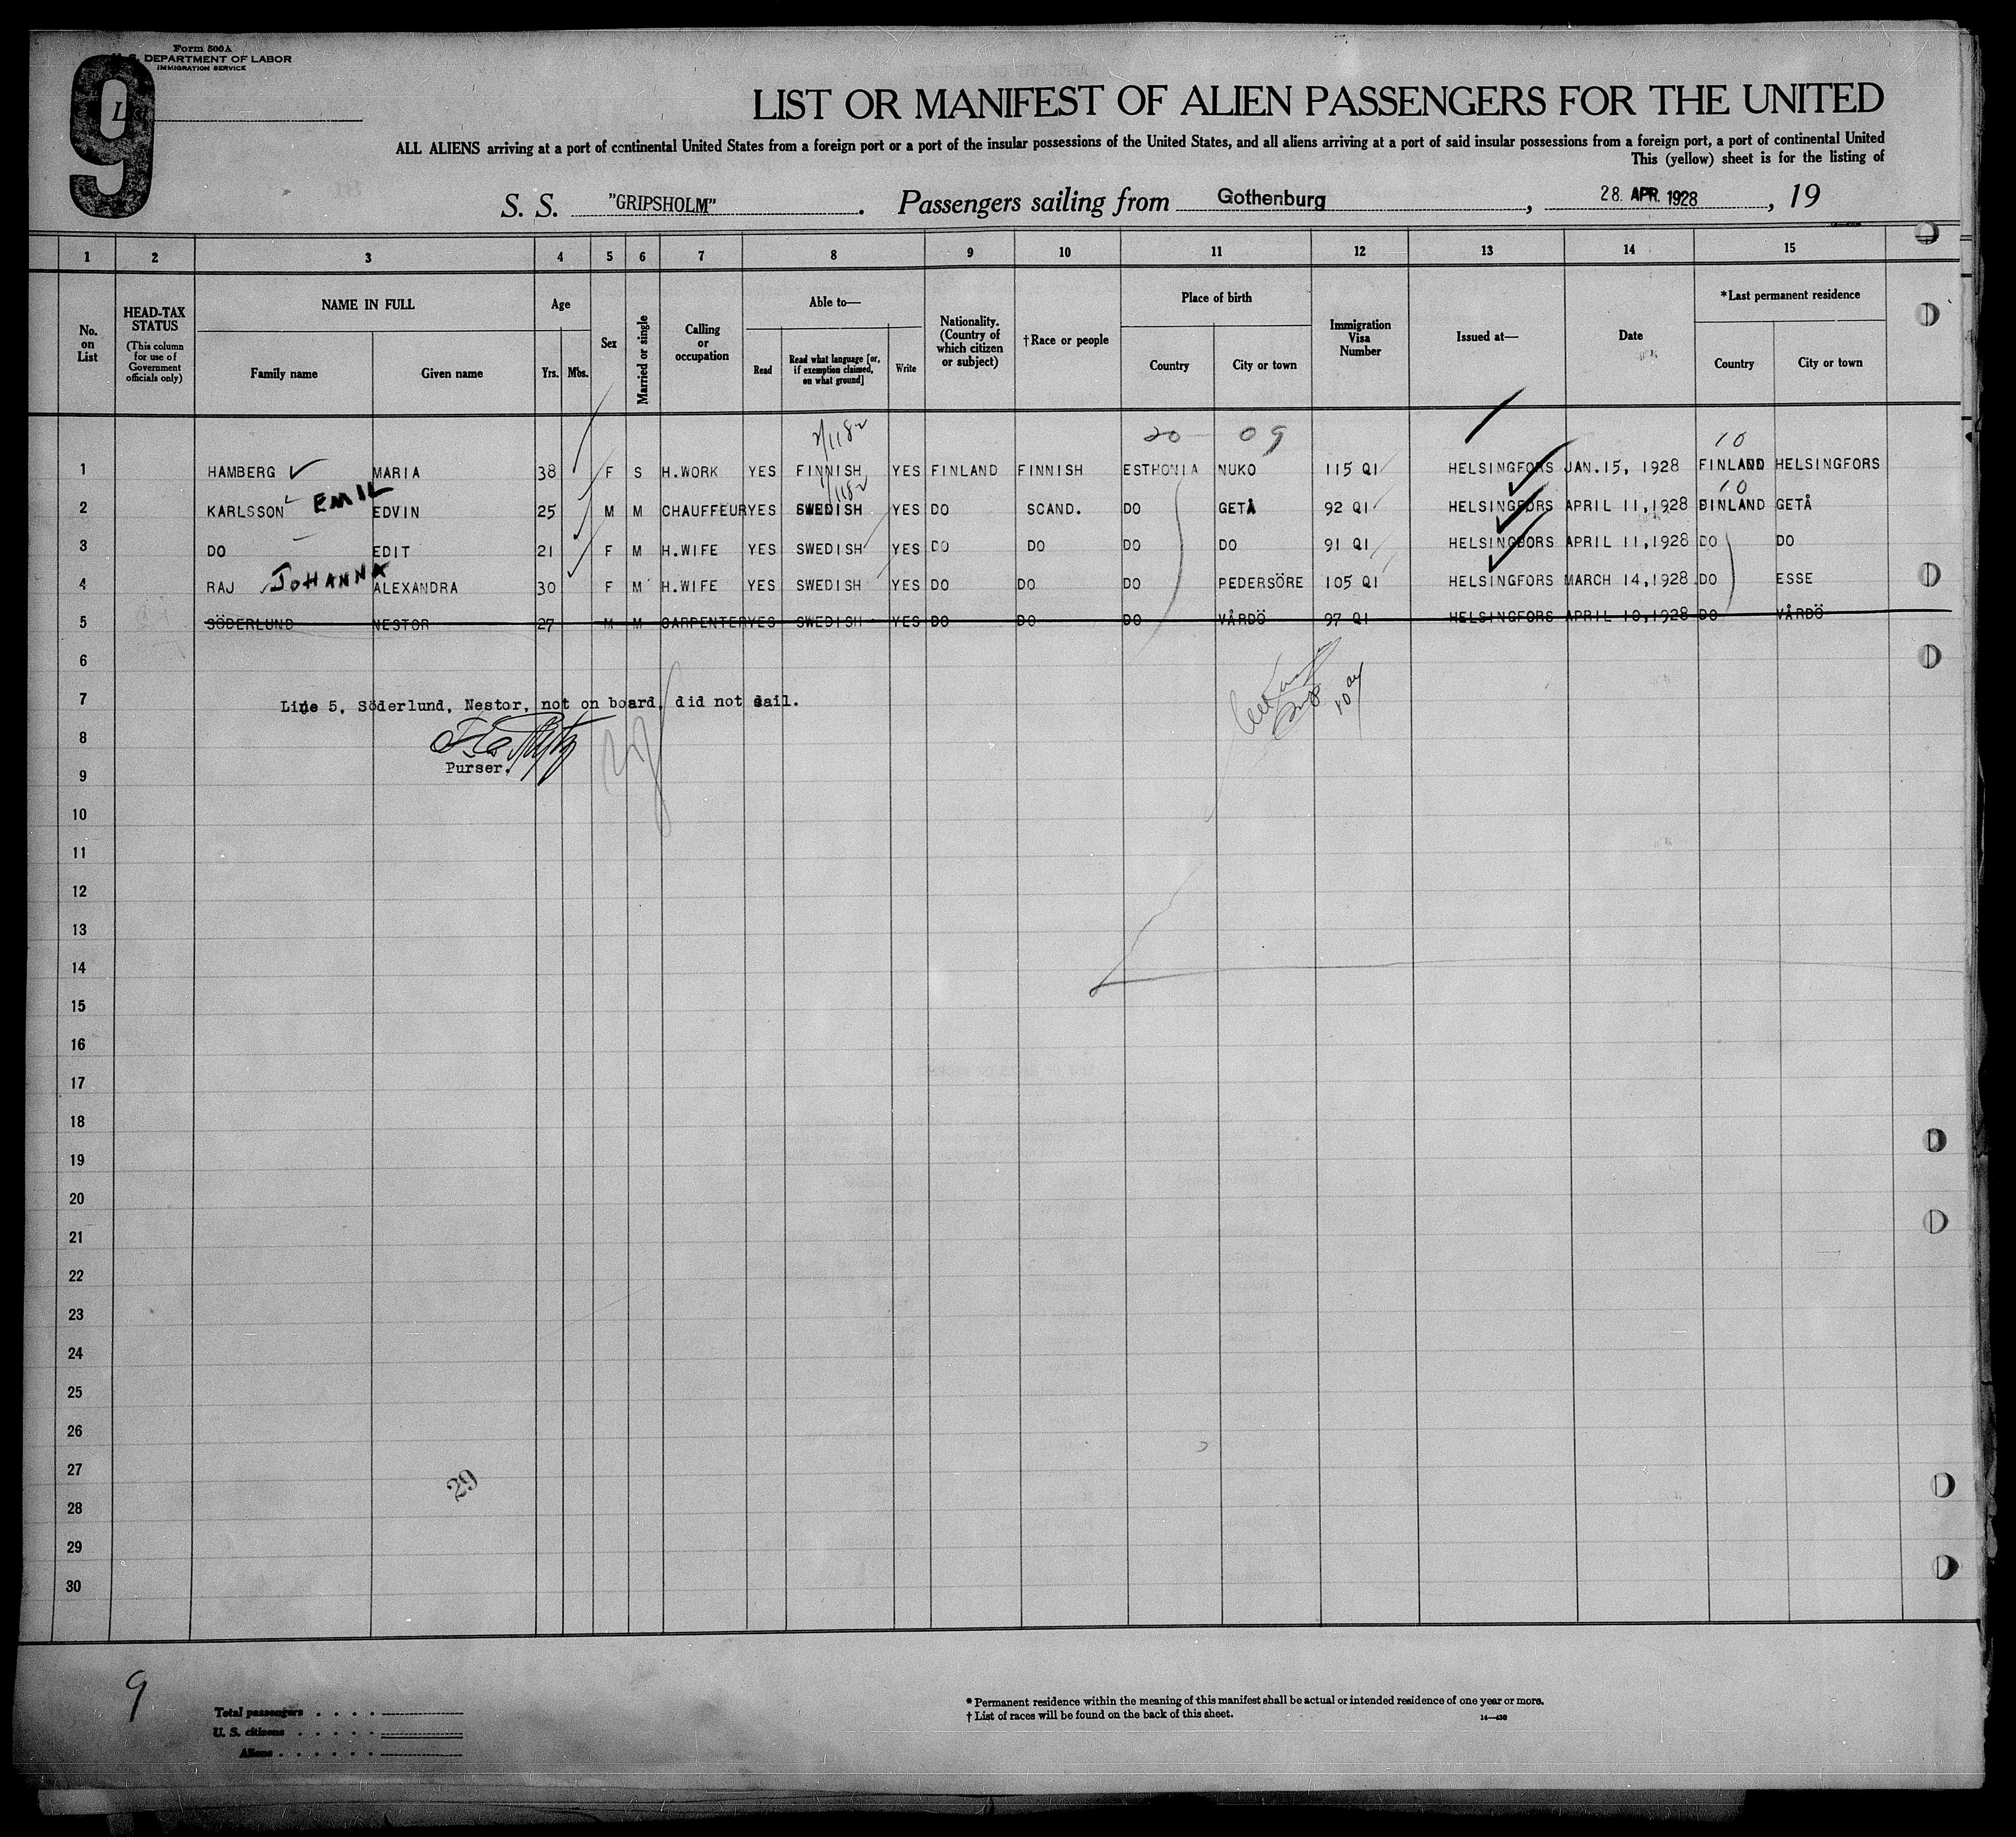 Form 500A
U. S. DEPARTMENT OF LABOR
IMMIGRATION SERVICE
9
List
LIST OR MANIFEST OF ALIEN PASSENGERS FOR THE UNITED
ALL ALIENS arriving at a port of continental United States from a foreign port or a port of the insular possessions of the United States, and all aliens arriving at a port of said insular possessions from a foreign port, a port of continental United
This (yellow) sheet is for the listing of
S. S. "GRIPSHOLM". Passengers sailing from Gothenburg, 28. APR. 1928, 19
1 2 3 4 5 6 7 8 9 10 11 12 13 14 15
No. on List
HEAD-TAX STATUS (This column for use of Government officials only)
NAME IN FULL
Family name Given name
Age
Yrs. Mos.
Sex
Married or single
Calling or occupation
Able to—
Read Read what language [or, if exemption claimed, on what ground] Write
Nationality. (Country of which citizen or subject)
†Race or people
Place of birth
Country City or town
Immigration Visa Number
Issued at—
Date
*Last permanent residence
Country City or town
2/1182 20 09 10
1 HAMBERG MARIA 38 F S H.WORK YES FINNISH YES FINLAND FINNISH ESTHONIA NUKO 115 QI HELSINGFORS JAN.15, 1928 FINLAND HELSINGFORS
1182 10
2 KARLSSON EMIL EDVIN 25 M M CHAUFFEUR YES SWEDISH YES DO SCAND. DO GETÅ 92 QI HELSINGFORS APRIL 11,1928 BINLAND GETÅ
3 DO EDIT 21 F M H.WIFE YES SWEDISH YES DO DO DO DO 91 QI HELSINGBORS APRIL 11,1928 DO DO
4 RAJ JOHANNA ALEXANDRA 30 F M H.WIFE YES SWEDISH YES DO DO DO PEDERSÖRE 105 QI HELSINGFORS MARCH 14,1928 DO ESSE
5 SÖDERLUND NESTOR 27 M M CARPENTER YES SWEDISH YES DO DO DO VÅRDÖ 97 QI HELSINGFORS APRIL 10,1928 DO VÅRDÖ
6
7 Line 5, Söderlund, Nestor, not on board, did not sail.
8
9 Purser.
10
11
12
13
14
15
16
17
18
19
20
21
22
23
24
25
26
27
29
28
29
30
9
Total passengers
U. S. citizens
Aliens
* Permanent residence within the meaning of this manifest shall be actual or intended residence of one year or more.
† List of races will be found on the back of this sheet.
14—430